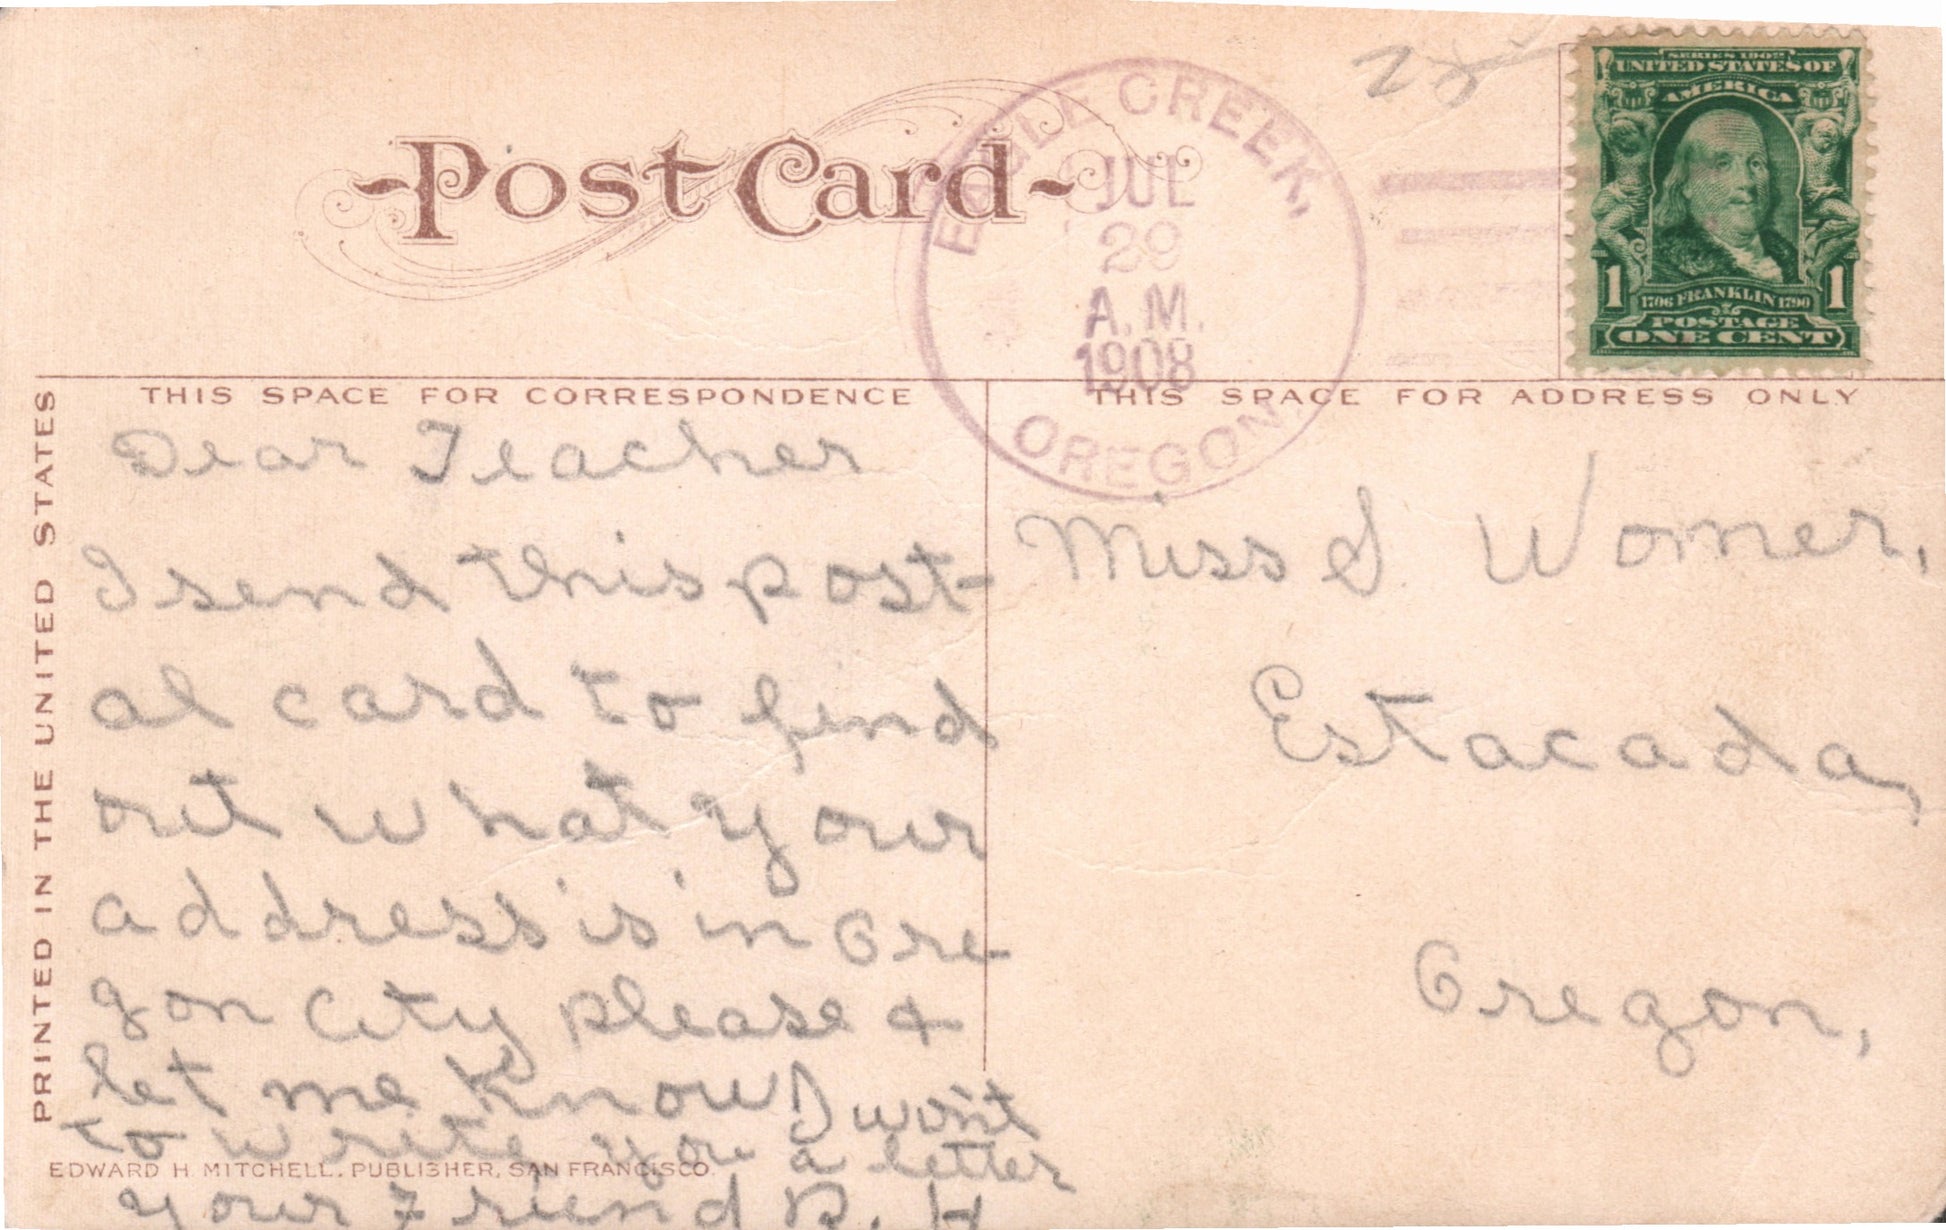 Post Card
EAGLE CREEK,
JUL
29
A.M.
1908
OREGON.
SERIES 1902
UNITED STATES OF
AMERICA
1706 FRANKLIN 1790
1 1
POSTAGE
ONE CENT
THIS SPACE FOR CORRESPONDENCE
THIS SPACE FOR ADDRESS ONLY
PRINTED IN THE UNITED STATES
Dear Teacher
I send this post-
al card to find
out what your
address is in Ore-
gon City please &
let me know I won't
to write you a letter
your Friend D. H
EDWARD H. MITCHELL, PUBLISHER, SAN FRANCISCO.
Miss S. Womer,
Estacada,
Oregon,